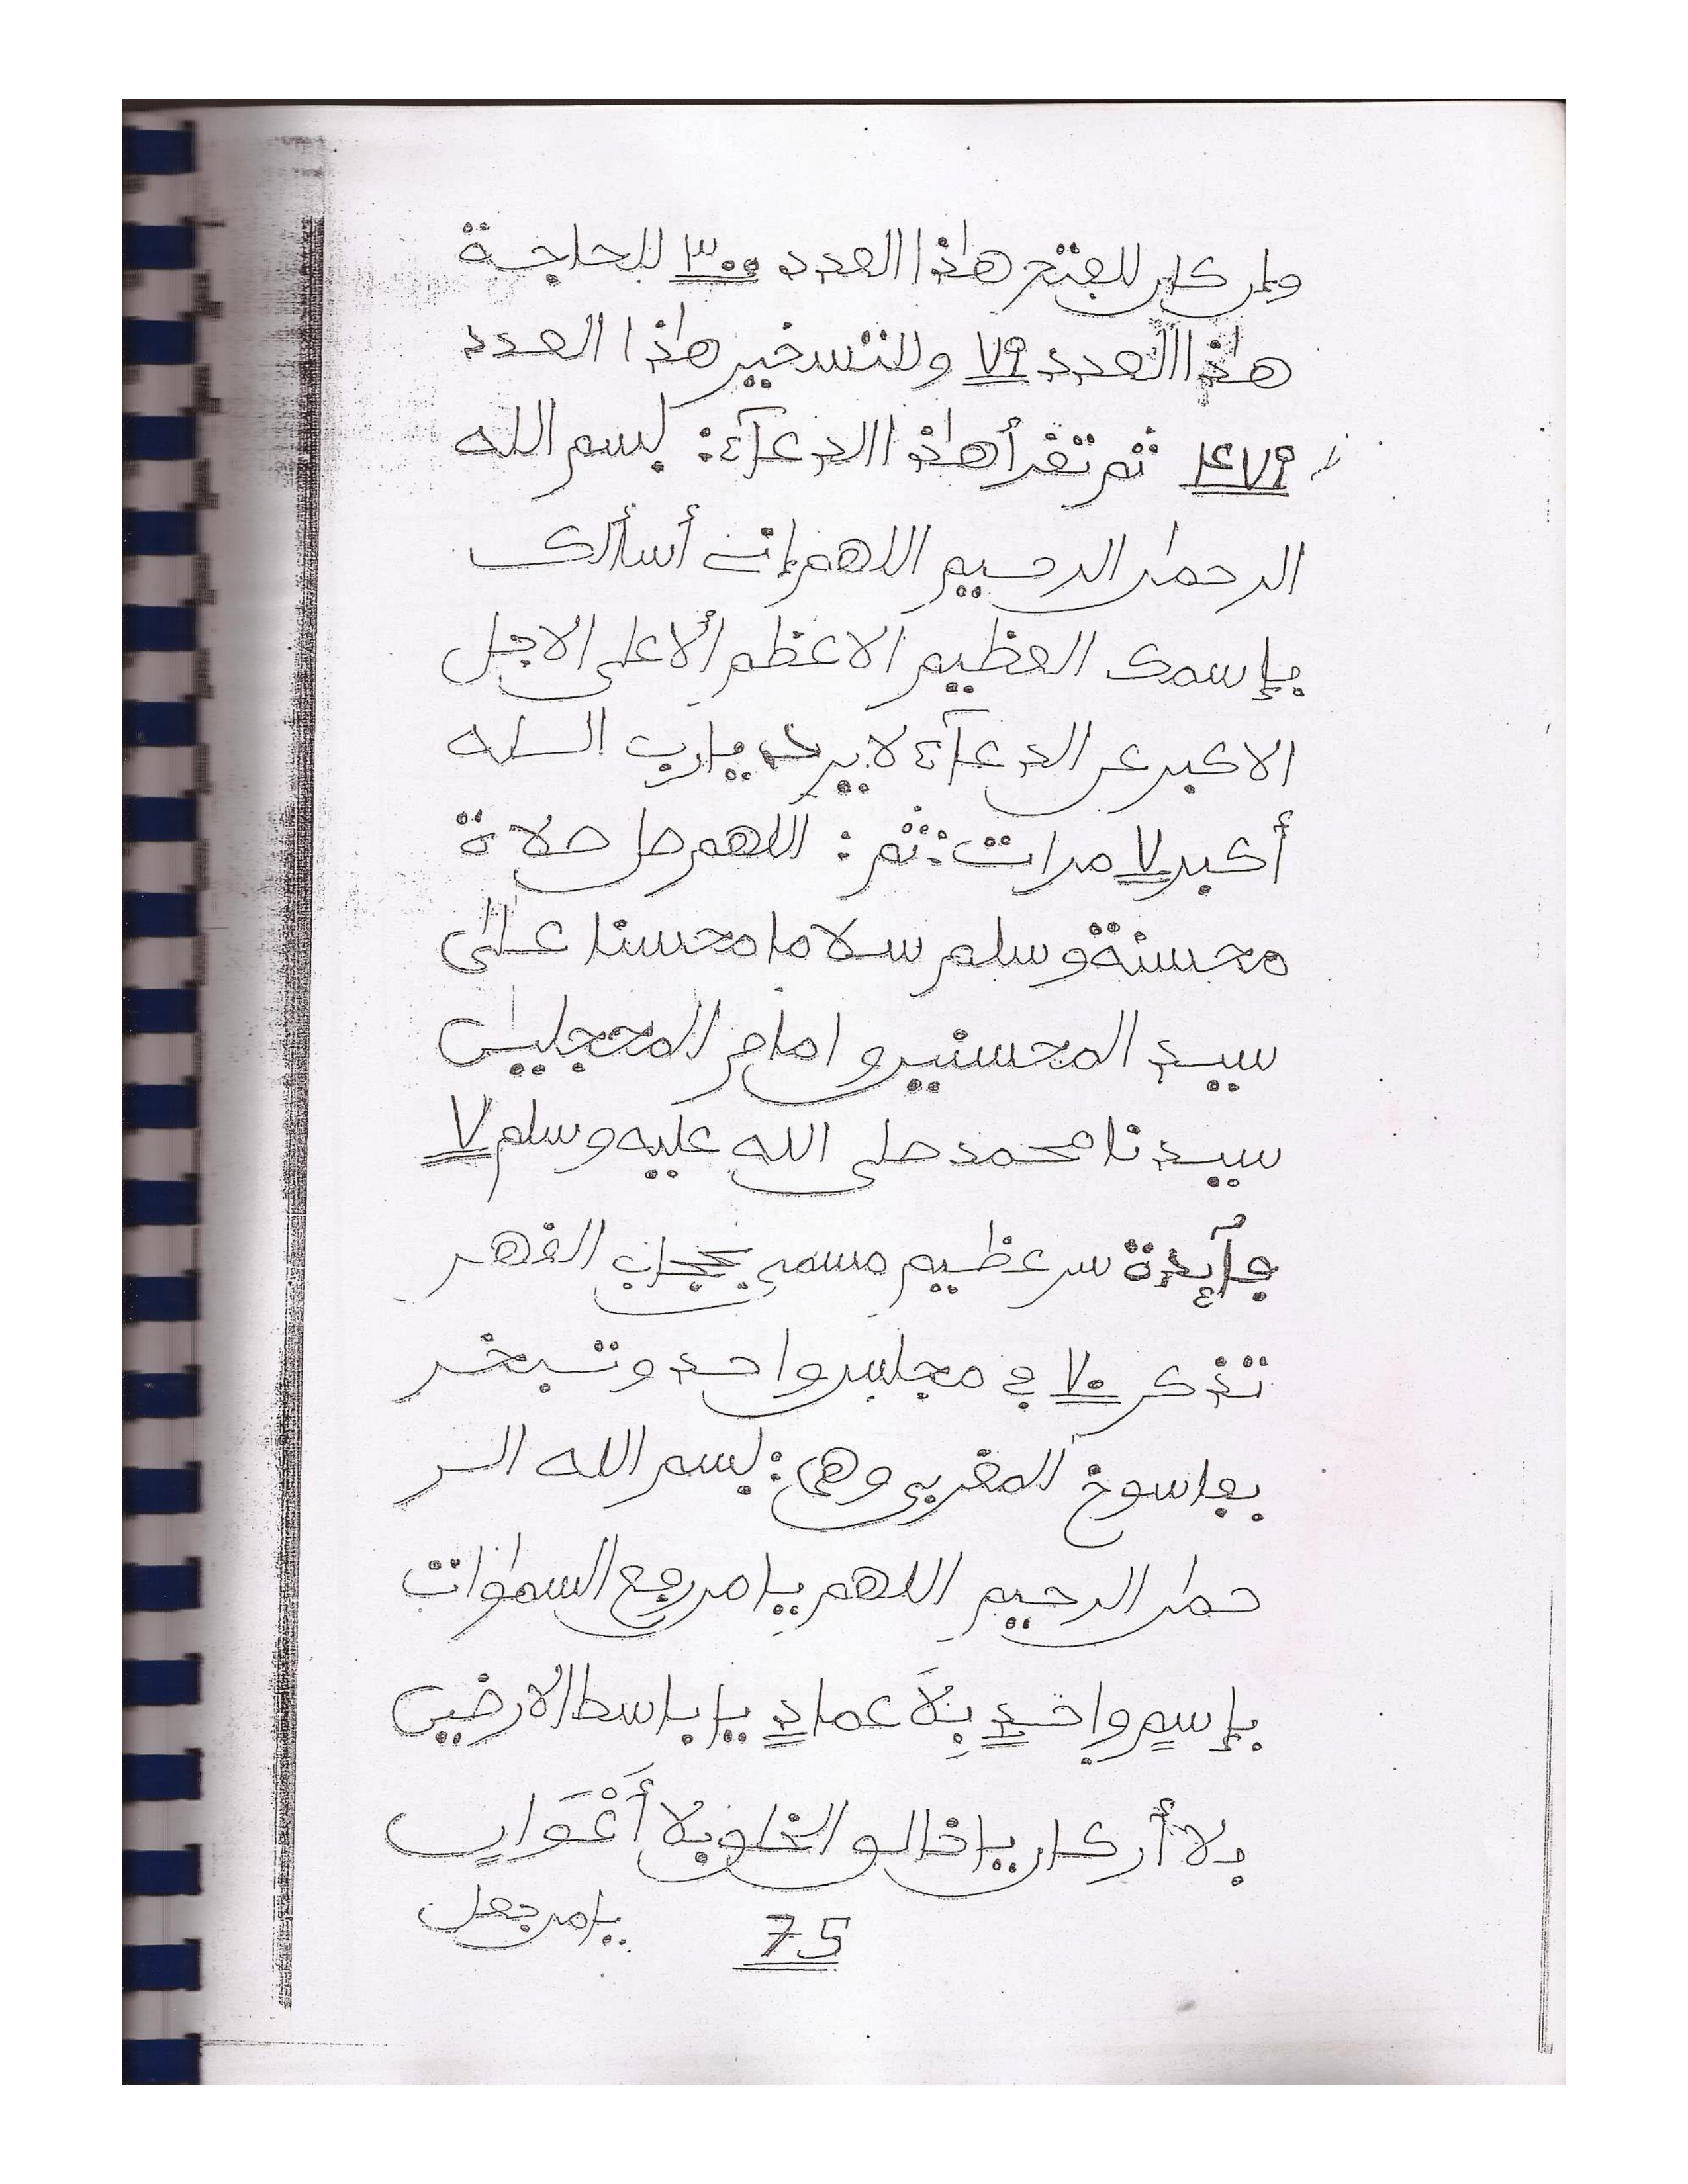 وإن كان للفتح هذا العدد ٣٠٠ للحاجة
هذا العدد ٧٩ وللتسخير هذا العدد
١٤٧٩ ثم تقرأ هذا الدعآء: بسم الله
الرحمٰن الرحيم اللهم إني أسألك
بإسمك العظيم الاعظم الأعلى الاجل
الاكبر الدعآء لا يرد يارب اللـه
أكبر ٧ مرات: ثم: اللهم صل صلاة
محسنة وسلم سلاما محسنا على
سيد المحسنين وامام المحجلين
سيدنا محمد صلى الله عليه وسلم ٧
فآئدة سر عظيم مسمى بحجاب القهر
تذكر ٧٠ في مجلس واحد وتبخر
بفاسوخ المغربي وهي: بسم الله الر
حمٰن الرحيم اللهم يا من رفع السمٰوات
بإسمٍ واحدٍ بِلَا عمادٍ يا باسط الارضين
بلا أركان يا خالق الخلق بلا أَعْوَانٍ
75
يامن جعل